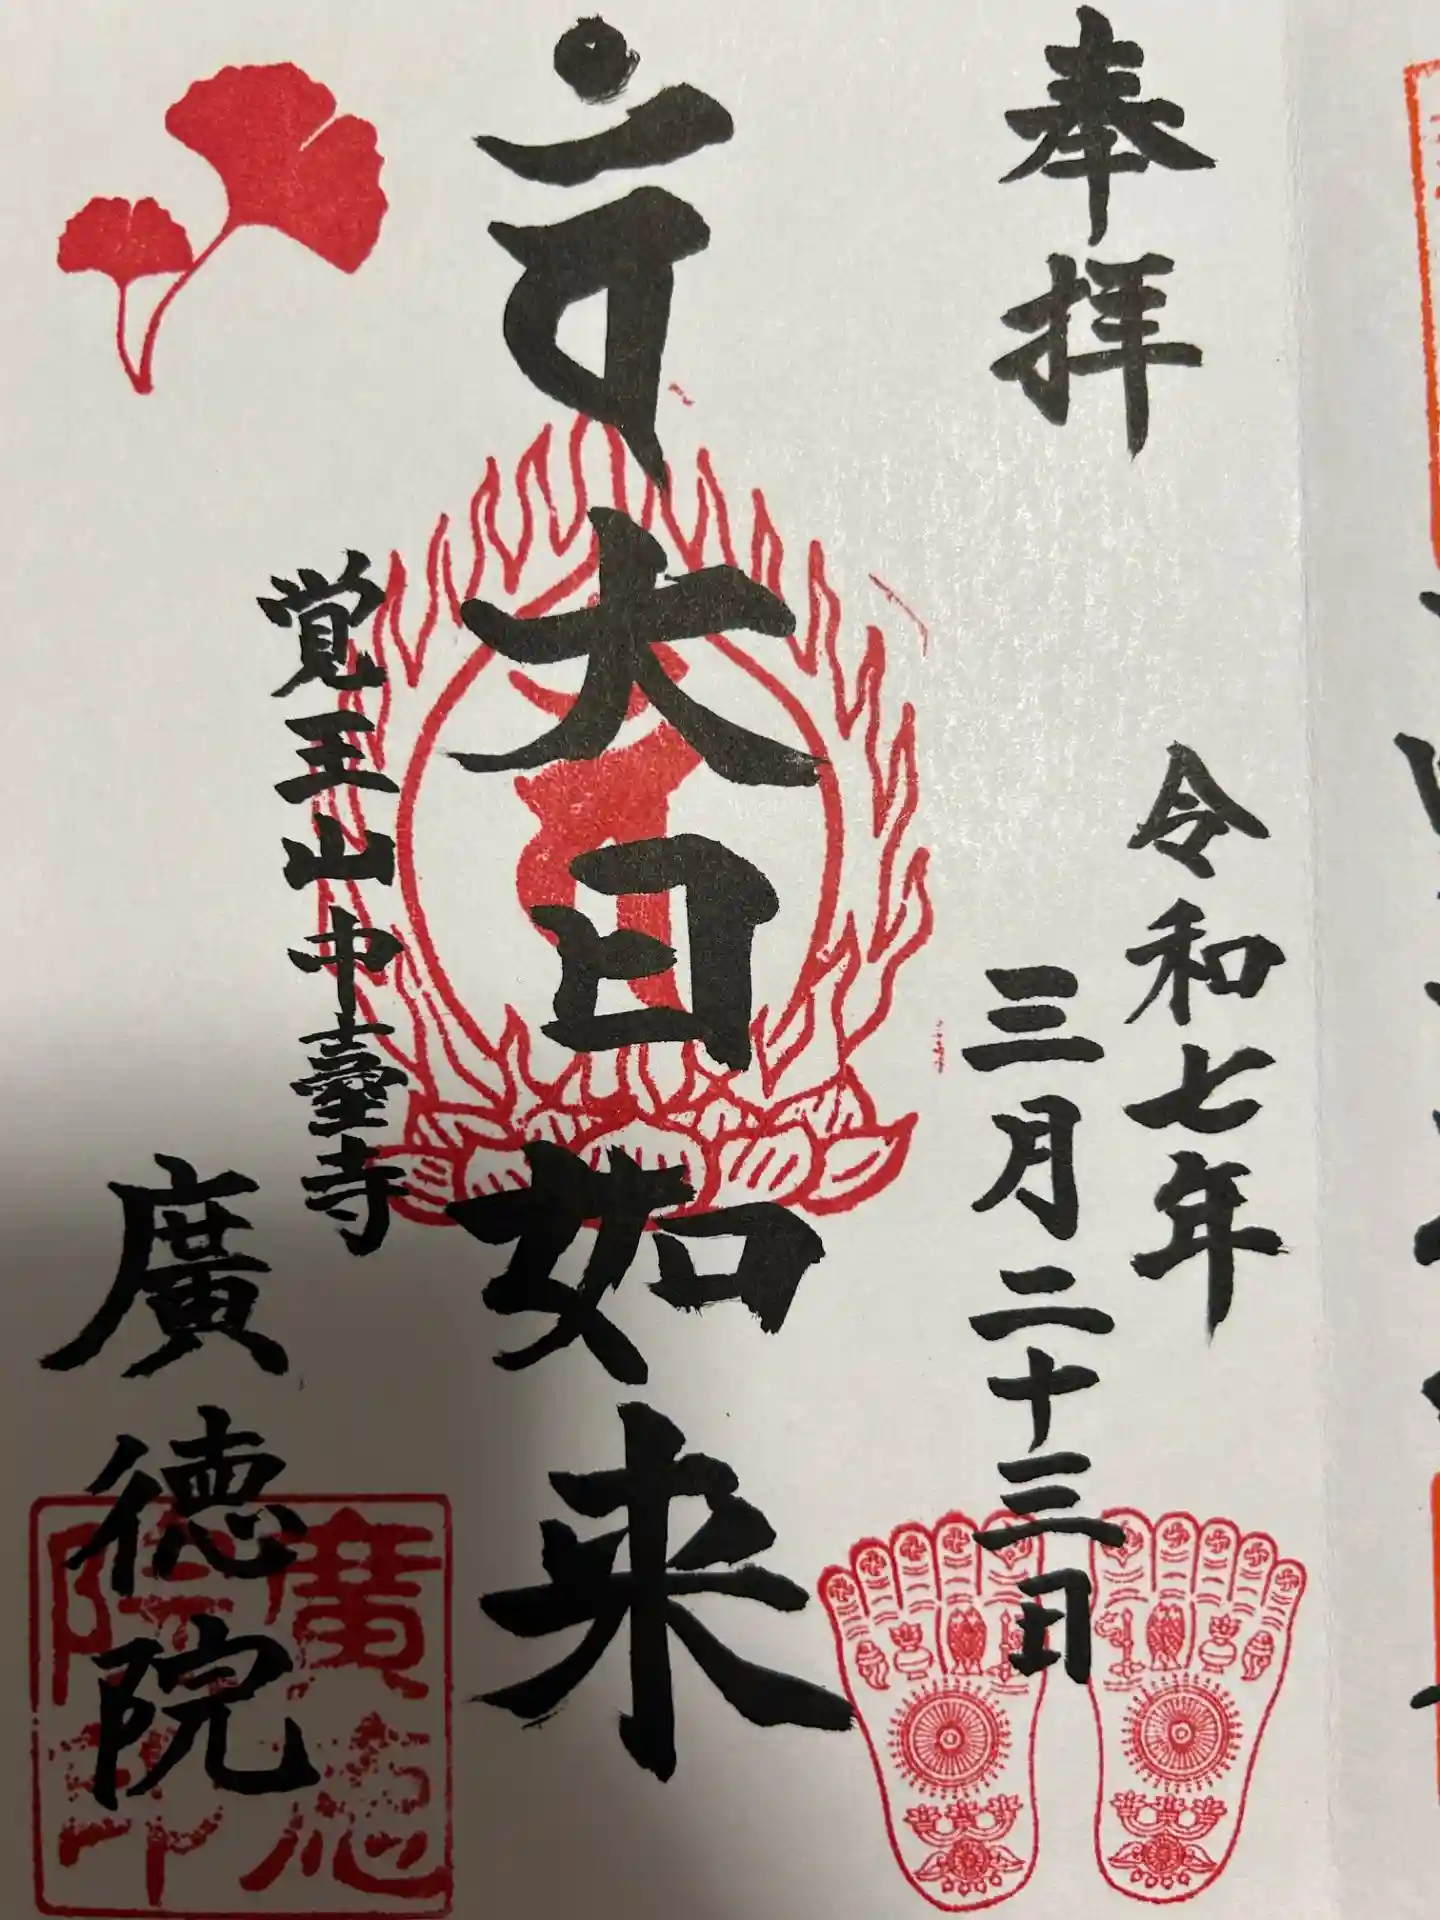 奉拝
令和七年
三月二十三日
𑖀𑖽大日如来
覚王山中臺寺
廣德院
廣德院印